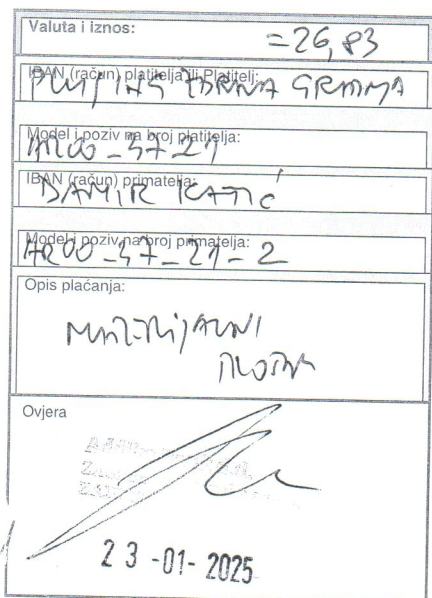 Valuta i iznos:
=26,83
IBAN (račun) platitelja ili Platitelj:
Model i poziv na broj platitelja:
HR00_37_21
IBAN (račun) primatelja:
DAMIR KATIĆ
Model i poziv na broj primatelja:
HR00_37_21_2
Opis plaćanja:
MATERIJALNI
Ovjera
23-01-2025